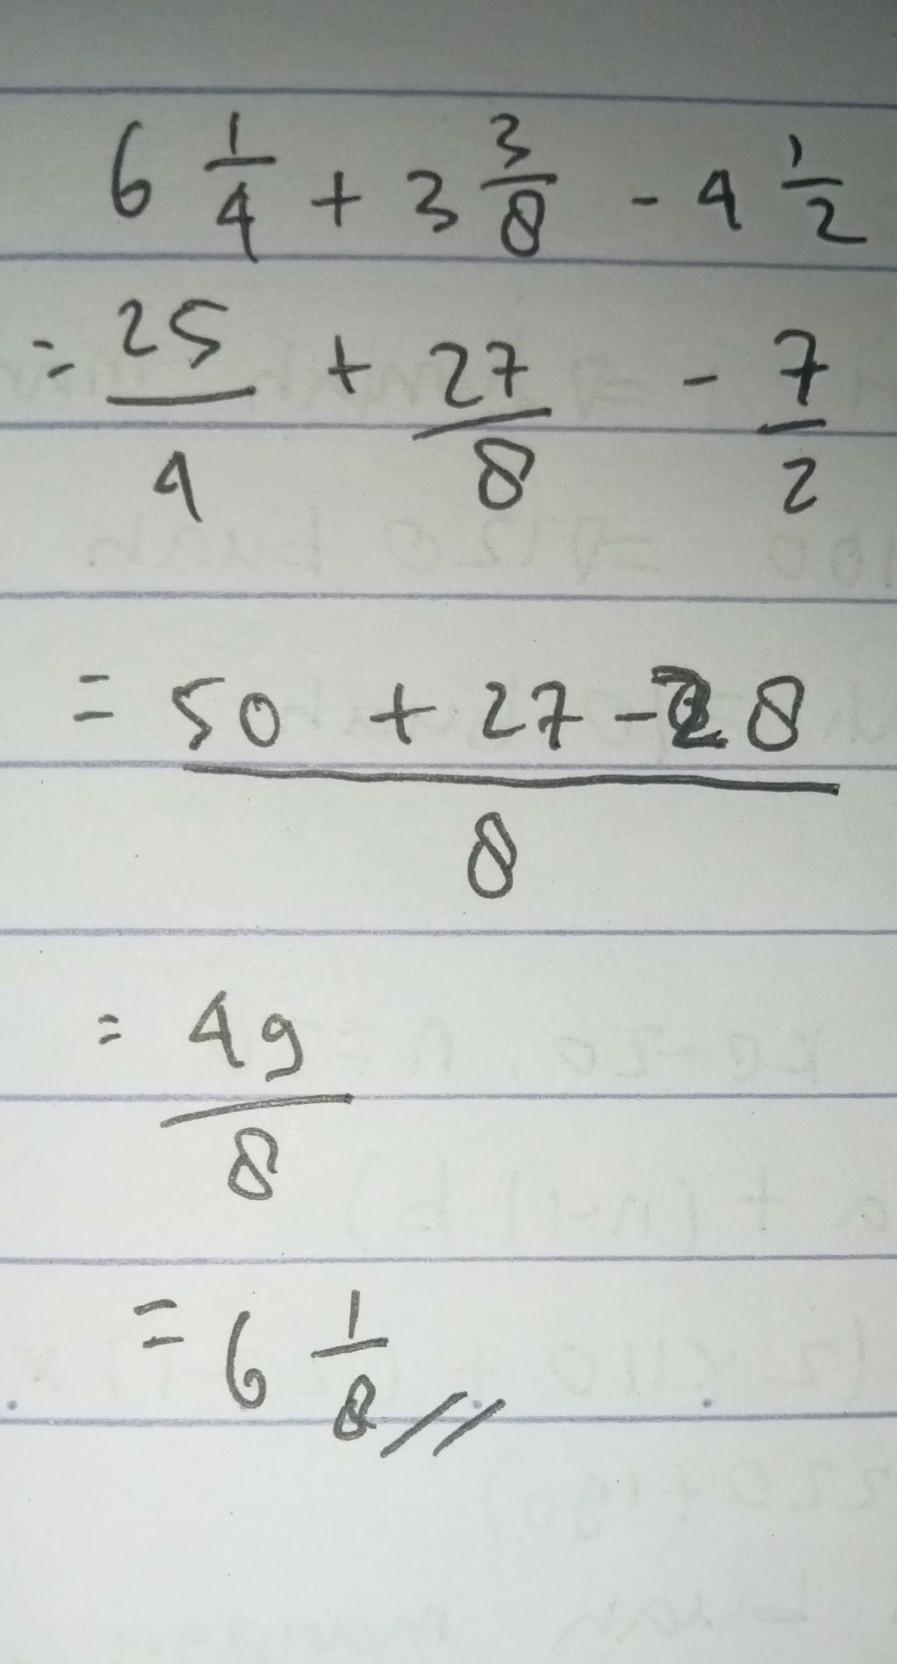 6 1/4 + 3 3/8 - 4 1/2
= 25/4 + 27/8 - 7/2
= 50 + 27 - 28 / 8
= 49/8
= 6 1/8 //